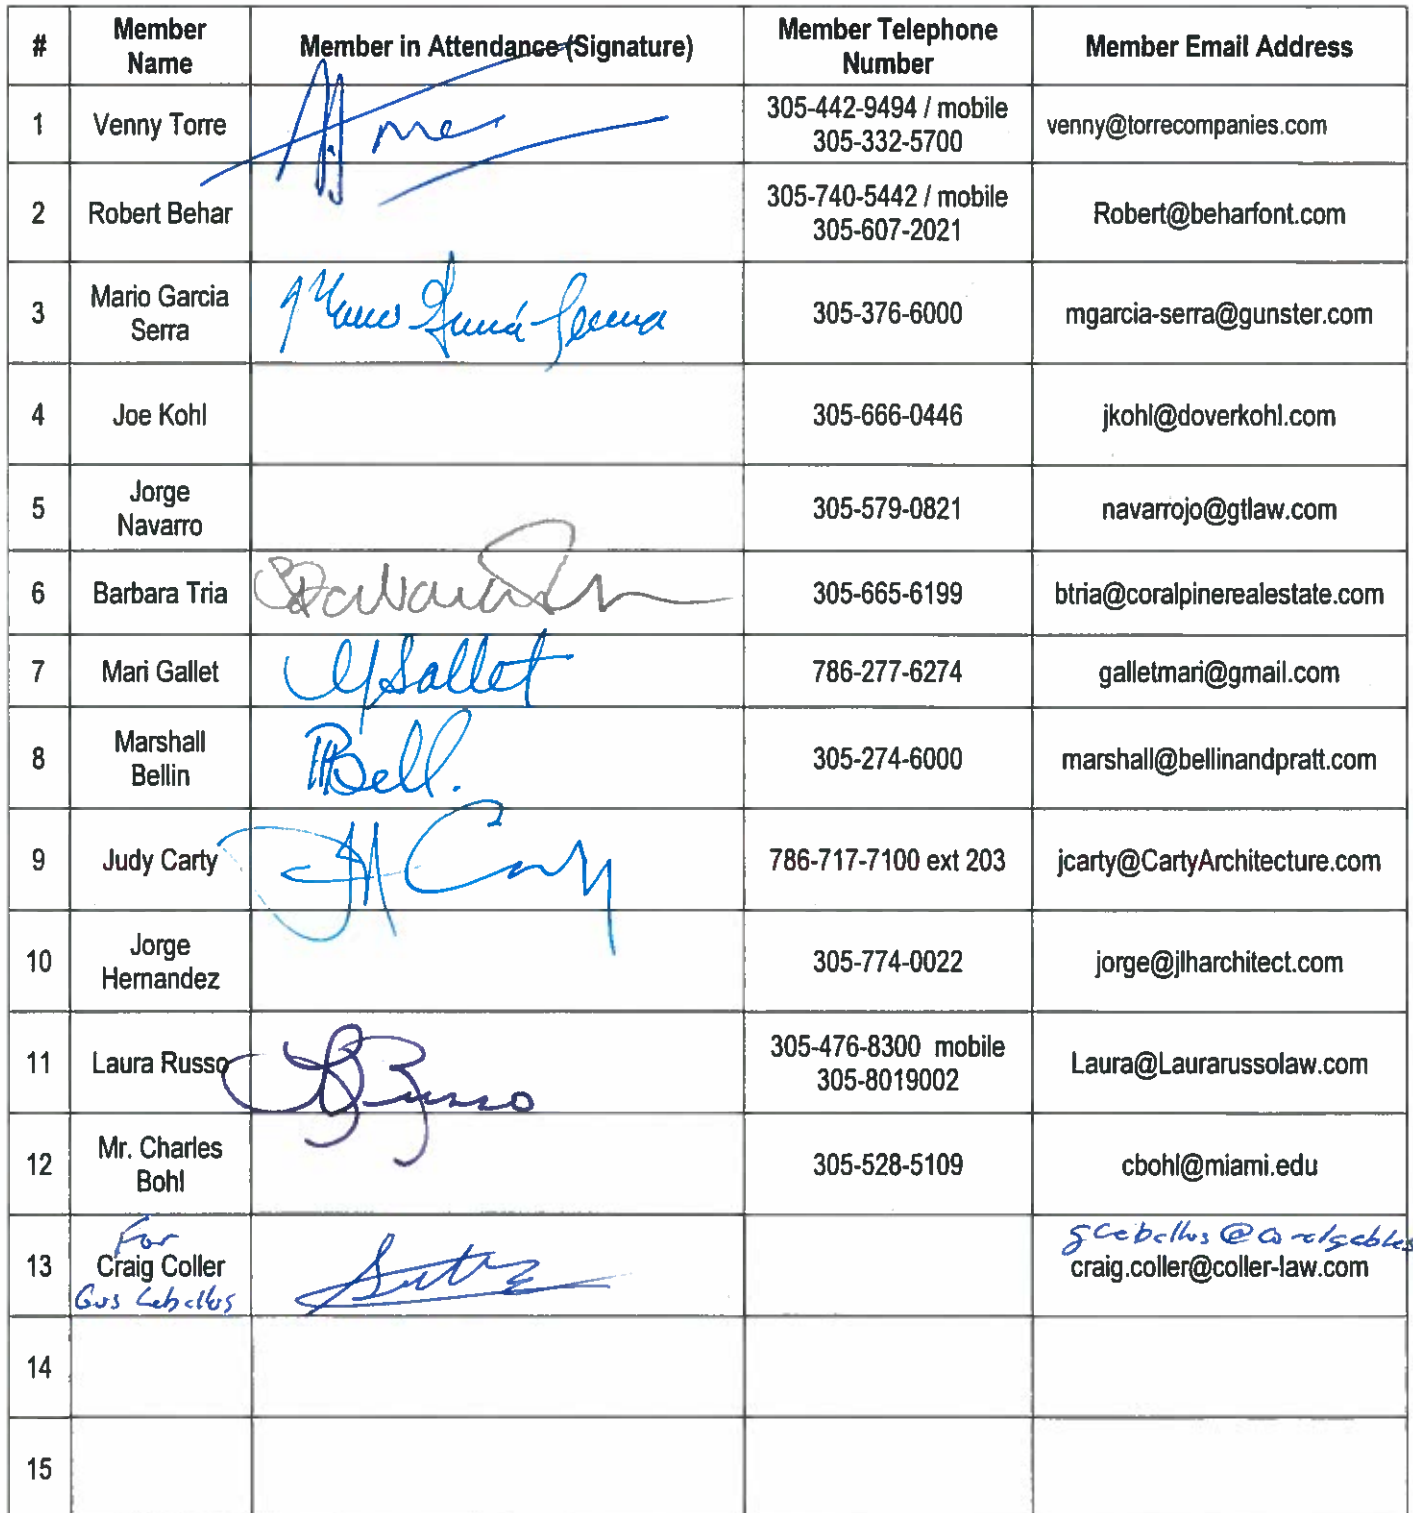 # Member Name Member in Attendance (Signature) Member Telephone Number Member Email Address
1 Venny Torre 305-442-9494 / mobile 305-332-5700 venny@torrecompanies.com
2 Robert Behar 305-740-5442 / mobile 305-607-2021 Robert@beharfont.com
3 Mario Garcia Serra 305-376-6000 mgarcia-serra@gunster.com
4 Joe Kohl 305-666-0446 jkohl@doverkohl.com
5 Jorge Navarro 305-579-0821 navarrojo@gtlaw.com
6 Barbara Tria 305-665-6199 btria@coralpinerealestate.com
7 Mari Gallet MGallet 786-277-6274 galletmari@gmail.com
8 Marshall Bellin Bell. 305-274-6000 marshall@bellinandpratt.com
9 Judy Carty 786-717-7100 ext 203 jcarty@CartyArchitecture.com
10 Jorge Hernandez 305-774-0022 jorge@jlharchitect.com
11 Laura Russo Russo 305-476-8300 mobile 305-8019002 Laura@Laurarussolaw.com
12 Mr. Charles Bohl 305-528-5109 cbohl@miami.edu
13 For Craig Coller Gus Ceballos gceballos@coralgables craig.coller@coller-law.com
14
15